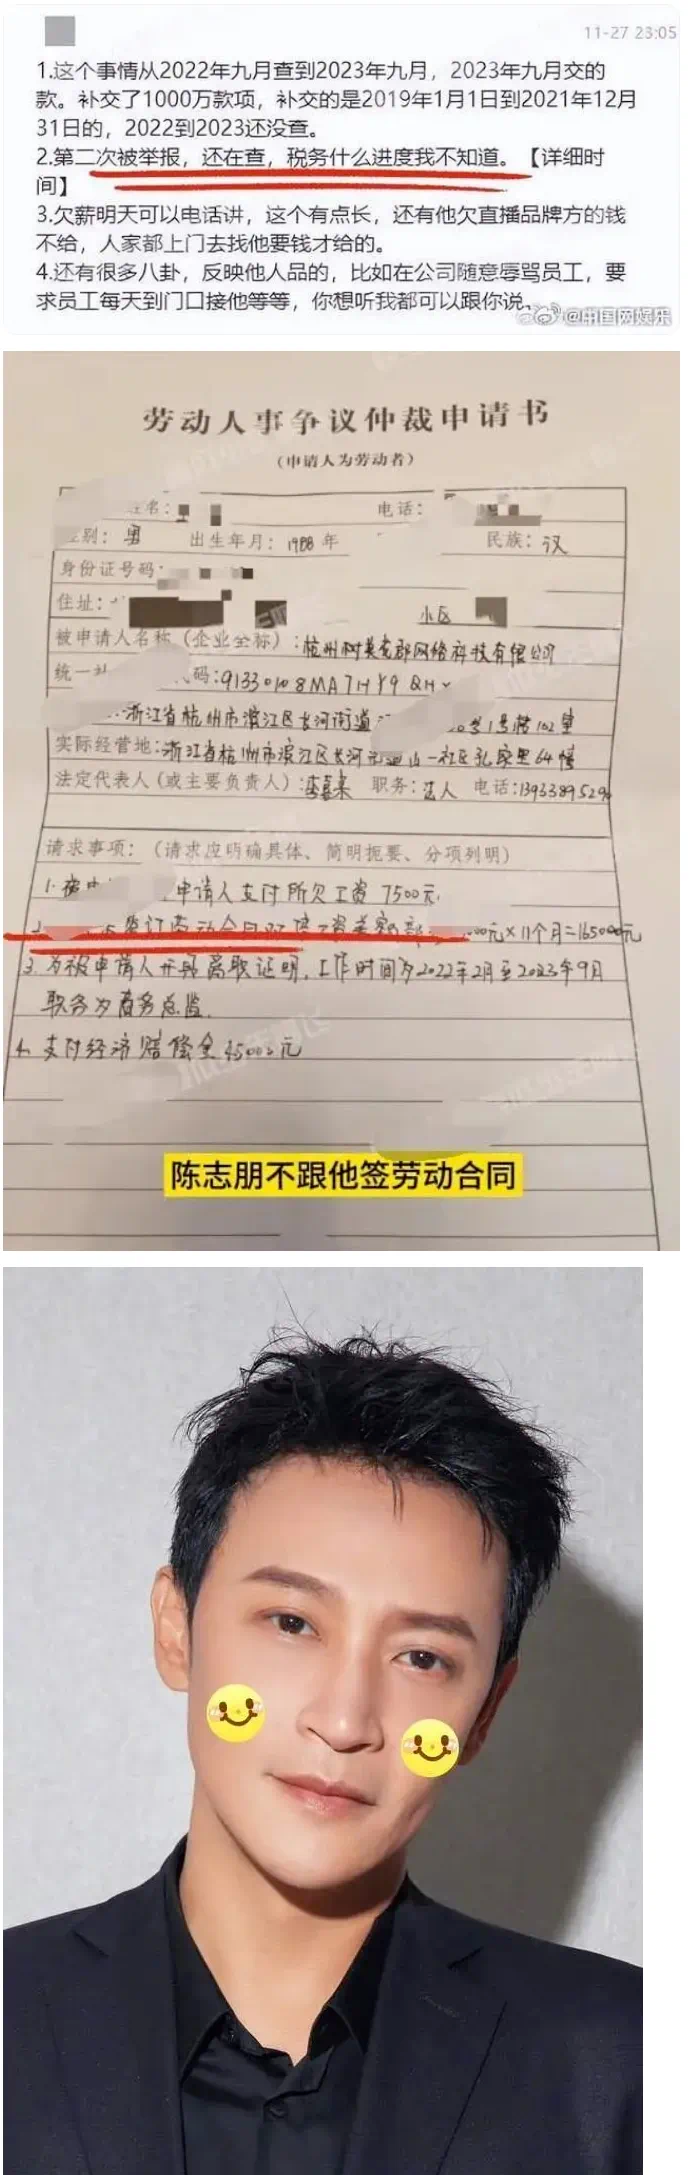 11-27 23:05
1.这个事情从2022年九月查到2023年九月，2023年九月交的
款。补交了1000万款项，补交的是2019年1月1日到2021年12月
31日的，2022到2023还没查。
2.第二次被举报，还在查，税务什么进度我不知道。【详细时
间】
3.欠薪明天可以电话讲，这个有点长，还有他欠直播品牌方的钱
不给，人家都上门去找他要钱才给的。
4.还有很多八卦，反映他人品的，比如在公司随意辱骂员工，要
求员工每天到门口接他等等，你想听我都可以跟你说。
@中国网娱乐
劳动人事争议仲裁申请书
（申请人为劳动者）
姓名： 电话：
性别：男 出生年月：1988年 民族：汉
身份证号码：
住址： 小区
被申请人名称（企业全称）：杭州树英龙郡网络科技有限公司
统一社 代码：91330108MA7HY9QH
浙江省杭州市滨江区长河街道 号1号楼102室
实际经营地：浙江省杭州市滨江区长河 山一社区孔家里64幢
法定代表人（或主要负责人）： 职务：法人 电话：1393389529
请求事项：（请求应明确具体、简明扼要、分项列明）
1. 申请人支付所欠工资7500元
2. 签订劳动合同双倍工资差额部 000元×11个月=165000元
3.为被申请人开具离职证明，工作时间为2022年2月至2023年9月
职务为商务总监.
4.支付经济赔偿金45000元
陈志朋不跟他签劳动合同